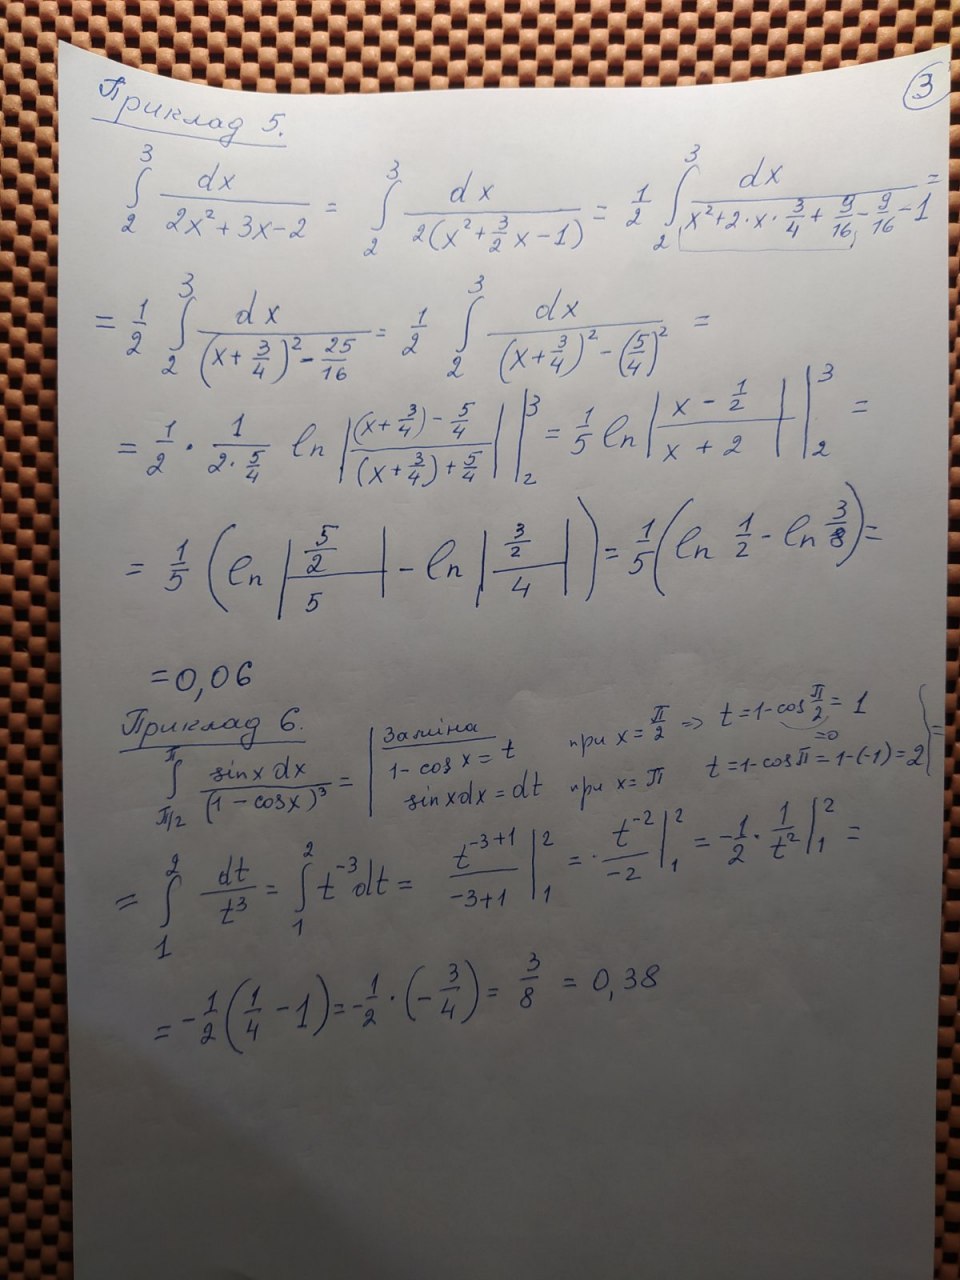 3
Приклад 5.
∫₂³ dx/(2x²+3x-2) = ∫₂³ dx/(2(x²+3/2x-1)) = 1/2 ∫₂³ dx/(x²+2·x·3/4+9/16-9/16-1) =
= 1/2 ∫₂³ dx/((x+3/4)²-25/16) = 1/2 ∫₂³ dx/((x+3/4)²-(5/4)²) =
= 1/2 · 1/(2·5/4) ln |((x+3/4)-5/4)/((x+3/4)+5/4)| |₂³ = 1/5 ln |(x-1/2)/(x+2)| |₂³ =
= 1/5 (ln |(5/2)/5| - ln |(3/2)/4|) = 1/5 (ln 1/2 - ln 3/8) =
= 0,06
Приклад 6.
∫_{π/2}^{π} sinx dx/(1-cosx)³ = | Заміна 1-cosx = t sinxdx = dt при x = π/2 => t=1-cos π/2 = 1 =0 при x = π t=1-cosπ=1-(-1)=2 } =
= ∫₁² dt/t³ = ∫₁² t⁻³dt = t⁻³⁺¹/(-3+1) |₁² = · t⁻²/-2 |₁² = -1/2 · 1/t² |₁² =
= -1/2 (1/4 - 1) = -1/2 · (-3/4) = 3/8 = 0,38